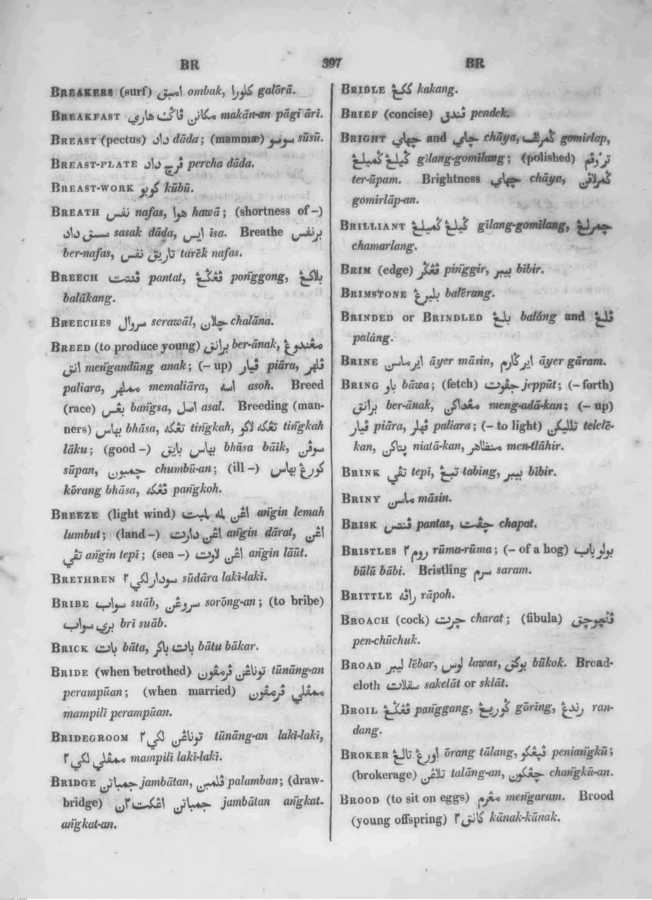 BR 397 BR
BREAKERS (surf) امبق ombak, کلورا galōrā.
BREAKFAST مکانن ڤاکت هاري makān-an pāgi āri.
BREAST (pectus) داد dāda; (mammæ) سوسو sūsū.
BREAST-PLATE ڤرچ داد percha dāda.
BREAST-WORK کوبو kūbū.
BREATH نفس nafas, هوا hawā; (shortness of –)
سسق داد sasak dāda, ايس īsa. Breathe برنفس
ber-nafas, تاريق نفس tarēk nafas.
BREECH ڤنتت pantat, ڤڠکڠ poṅggong, بلاکڠ
balākang.
BREECHES سروال serawāl, چلان chalāna.
BREED (to produce young) برانق ber-ānak, مڠندوڠ
انق meṅgandūng anak; (– up) ڤيار piāra, ڤلهر
paliara, مملهر memaliāra, اسه asoh. Breed
(race) بڠس baṅgsa, اصل asal. Breeding (man-
ners) بهاس bhāsa, تڠکه tiṅgkah, تڠکه لاکو tiṅgkah
lāku; (good –) بهاس بايق bhāsa bāik, سوڤن
sūpan, چمبون chumbū-an; (ill –) کورڠ بهاس
kōrang bhāsa, ڤڠکه paṅgkoh.
BREEZE (light wind) اڠن لمه لمبت aṅgin lemah
lumbut; (land –) اڠن دارت aṅgin dārat, اڠن
تڤي aṅgin tepi; (sea –) اڠن لاوت aṅgin lāūt.
BRETHREN سودار لکي٢ sūdāra laki-laki.
BRIBE سواب suāb, سروڠن sorōng-an; (to bribe)
بري سواب brī suāb.
BRICK بات bāta, بات باکر bātu bākar.
BRIDE (when betrothed) توناڠن ڤرمڤون tūnāng-an
perampūan; (when married) ممڤلي ڤرمڤون
mampili perampūan.
BRIDEGROOM توناڠن لکي٢ tūnāng-an laki-laki,
ممڤلي لکي٢ mampili laki-laki.
BRIDGE جمباتن jambātan, ڤلمبن palamban; (draw-
bridge) جمباتن اڠکت٢ن jambātan aṅgkat-
aṅgkat-an.
BRIDLE ککڠ kakang.
BRIEF (concise) ڤندق pendek.
BRIGHT چاي and چهاي chāya, کمرلڤ gomirlap,
کيلڠ کميلڠ gīlang-gomīlang; (polished) ترأوڤم
ter-ūpam. Brightness چهاي chāya, کمرلاڤن
gomirlāp-an.
BRILLIANT کيلڠ کميلڠ gīlang-gomīlang, چمرلڠ
chamarlang.
BRIM (edge) ڤڠکر piṅggir, بيبر bībir.
BRIMSTONE بليرڠ balērang.
BRINDED OR BRINDLED بلڠ balāng and ڤلڠ
palāng.
BRINE اير ماسن āyer māsin, اير کارم āyer gāram.
BRING باو bāwa; (fetch) جڤوت jeppūt; (– forth)
برانق ber-ānak, مڠداکن meng-adā-kan; (– up)
ڤيار piāra, ڤلهر paliara; (– to light) تلليکن telelē-
kan, پتاکن niatā-kan, منتظاهر men-tlāhir.
BRINK تڤي tepi, تبيڠ tabing, بيبر bibir.
BRINY ماسن māsin.
BRISK ڤنتس pantas, چڤت chapat.
BRISTLES روم٢ rūma-rūma; (– of a hog) بولو باب
būlū bābi. Bristling سرم saram.
BRITTLE راڤه rāpoh.
BROACH (cock) چرت charat; (fibula) ڤنچوچق
pen-chūchuk.
BROAD ليبر lēbar, لوس lawas, بوکق būkok. Broad-
cloth سقلات sakelāt or sklāt.
BROIL ڤڠکڠ paṅggang, کوريڠ gōring, رندڠ ran-
dang.
BROKER اورڠ تالڠ ōrang tālang, ڤيڠکو peniaṅgkū;
(brokerage) تلاڠن talāng-an, چڠکون chaṅgkū-an.
BROOD (to sit on eggs) مڠرم meṅgaram. Brood
(young offspring) کانق٢ kānak-kānak.